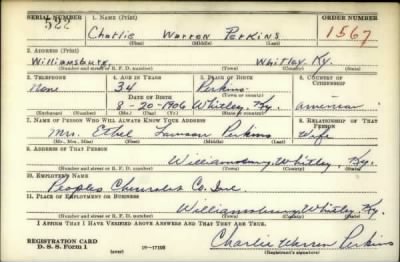 SERIAL NUMBER 1. NAME (Print) ORDER NUMBER
522 Charlie Warren Perkins 1567
(First) (Middle) (Last)
2. ADDRESS (Print)
Williamsburg Whitley Ky.
(Number and street or R. F. D. number) (Town) (County) (State)
3. TELEPHONE 4. AGE IN YEARS 5. PLACE OF BIRTH 6. COUNTRY OF CITIZENSHIP
None 34 Perkins
DATE OF BIRTH (Town or county)
8-20-1906 Whitley, Ky. American
(Exchange) (Number) (Mo.) (Day) (Yr.) (State or country)
7. NAME OF PERSON WHO WILL ALWAYS KNOW YOUR ADDRESS 8. RELATIONSHIP OF THAT PERSON
Mrs. Ethel Lawson Perkins Wife
(Mr., Mrs., Miss) (First) (Middle) (Last)
9. ADDRESS OF THAT PERSON
Williamsburg, Whitley, Ky.
(Number and street or R. F. D. number) (Town) (County) (State)
10. EMPLOYER'S NAME
Peoples Chevrolet Co. Inc
11. PLACE OF EMPLOYMENT OR BUSINESS
Williamsburg Whitley Ky.
(Number and street or R. F. D. number) (Town) (County) (State)
I AFFIRM THAT I HAVE VERIFIED ABOVE ANSWERS AND THAT THEY ARE TRUE.
REGISTRATION CARD
D. S. S. Form 1 (over) 16—17105 Charlie Warren Perkins
(Registrant's signature)